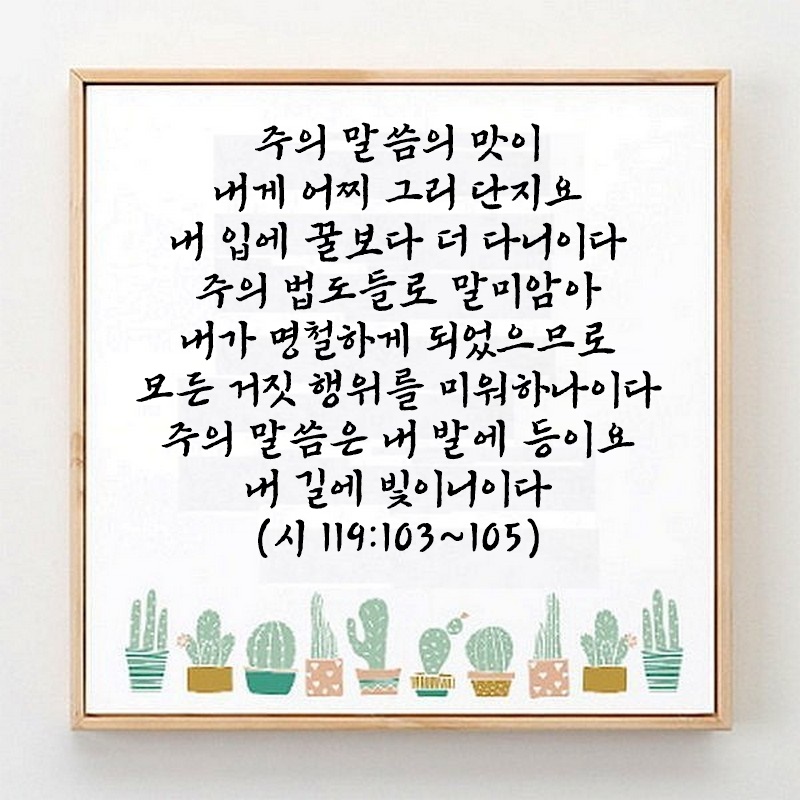 주의 말씀의 맛이
내게 어찌 그리 단지요
내 입에 꿀보다 더 다니이다
주의 법도들로 말미암아
내가 명철하게 되었으므로
모든 거짓 행위를 미워하나이다
주의 말씀은 내 발에 등이요
내 길에 빛이니이다
(시 119:103~105)